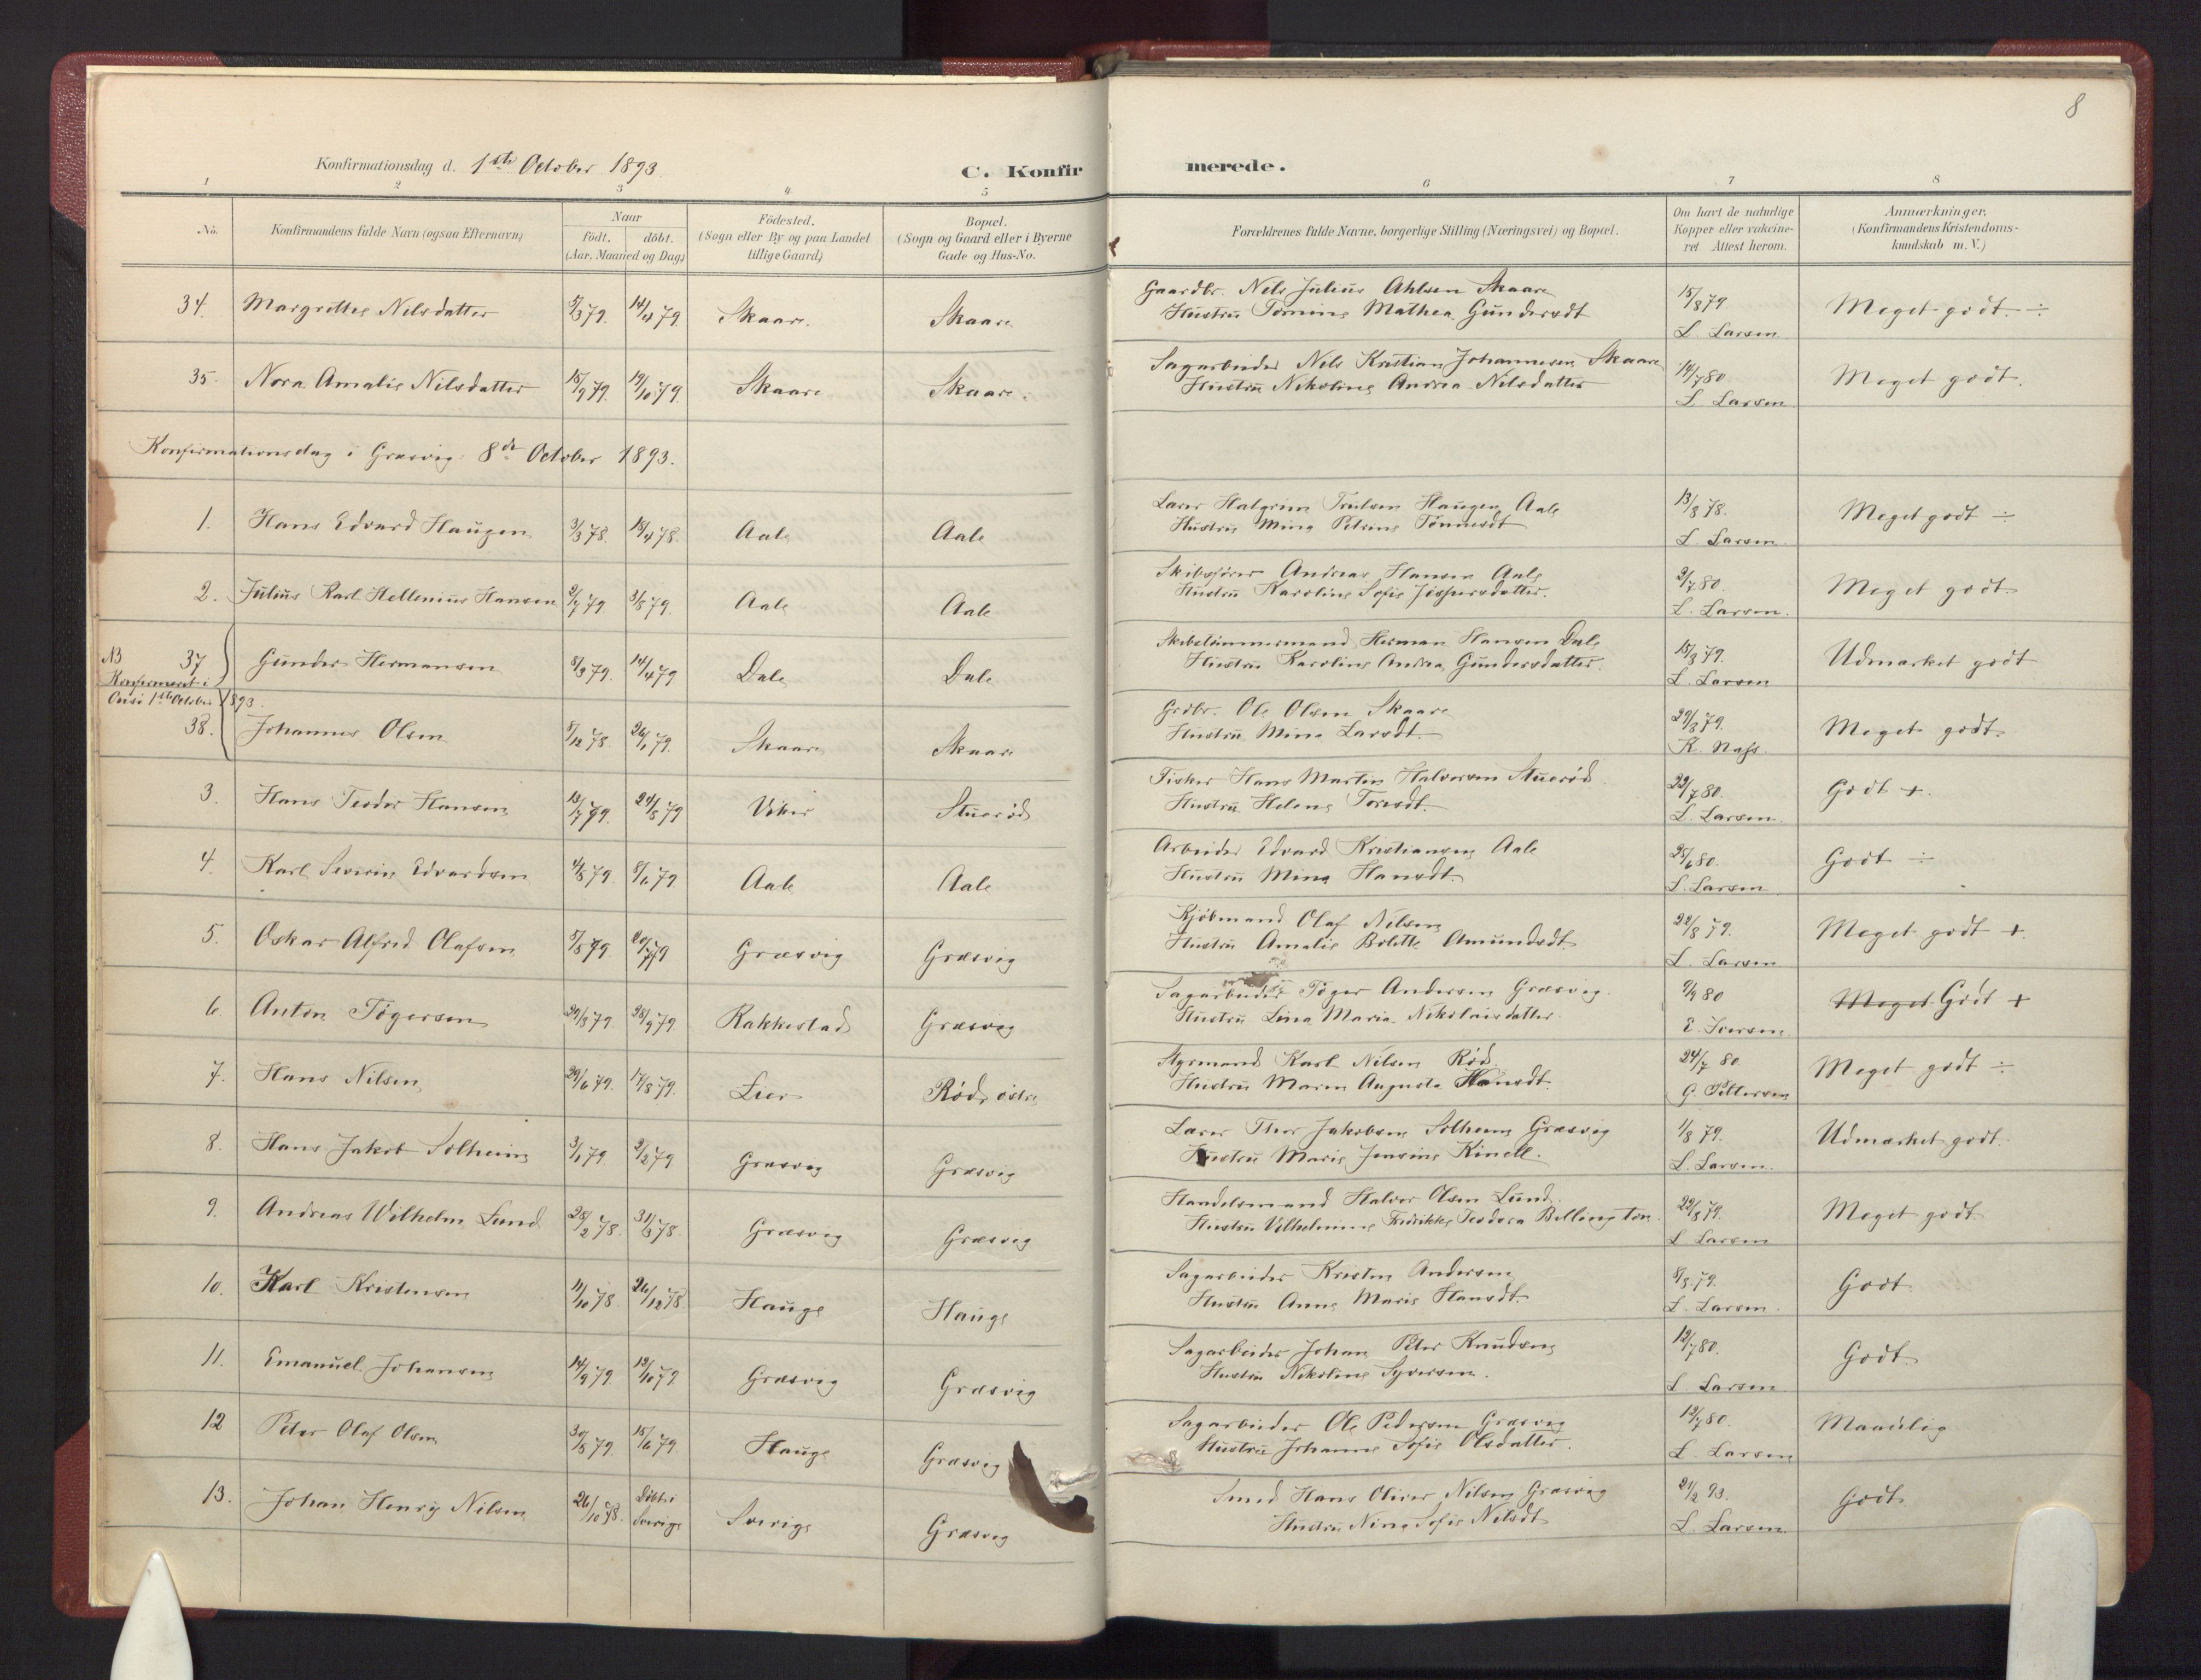 8
Konfirmationsdag d. 1ste October 1893.
C. Konfirmerede.
1 2 3 4 5 6 7 8
No. Konfirmandens fulde Navn (ogsaa Efternavn) Naar født. døbt. (Aar, Maaned og Dag) Födested. (Sogn eller By og paa Landet tillige Gaard) Bopæl. (Sogn og Gaard eller i Byerne Gade og Hus-No. Forældrenes fulde Navne, borgerlige Stilling (Næringsvei) og Bopæl. Om havt de naturlige Kopper eller vakcineret Attest herom. Anmærkninger. (Konfirmandens Kristendomskundskab m. V.)
34. Margrethe Nilsdatter 5/3 79. 14/4 79. Skaare. Skaare Gaardbr. Nils Julius Ahlsen Skaare 15/8 79. Meget godt. ÷
Hustru Tomine Mathea Gundersdt L. Larsen
35. Nora Amalie Nilsdatter 15/9 79. 19/10 79. Skaare Skaare. Sagarbeider Nils Kristian Johannesen Skaare 14/7 80. Meget godt.
Hustru Nikoline Andrea Nilsdatter L. Larsen
Konfirmationsdag i Græsvig 8de October 1893.
1. Hans Edvard Haugen 3/3 78. 18/4 78. Aale Aale Lærer Halgrim Trulsen Haugen Aale 13/8 78. Meget godt ÷
Hustru Mina Petrine Tønnesdt L. Larsen
2. Julius Karl Hellenius Hansen 2/7 79. 3/8 79. Aale Aale Skibsfører Andreas Hansen Aale 2/7 80. Meget godt
Hustru Karoline Sofie Jespersdatter. L. Larsen.
NB 37 Gunder Hermansen 8/3 79. 14/4 79 Dale Dale Skibstømmermand Herman Hansen Dale 15/8 79. Udmærket godt
Konfirmeret i Onsö 1ste October 1893. Hustru Karoline Andrea Gundersdatter. L. Larsen
38. Johannes Olsen 8/12 78. 26/1 79. Skaare Skaare Grdbr. Ole Olsen Skaare 29/8 79. Meget godt.
Hustru Mina Larsdt. K. Næss.
3. Hans Teodor Hansen 13/7 79. 24/8 79 Viker Stuerød Fisker Hans Martin Halvorsen Stuerød 22/7 80. Godt +.
Hustru Helene Toresdt. L. Larsen.
4. Karl Severin Edvardsen 4/5 79. 8/6 79. Aale Aale Arbeider Edvard Kristiansen Aale 25/6 80. Godt ÷
Hustru Mina Hansdt. L. Larsen
5. Oskar Alfred Olafsen 5/5 79. 20/7 79 Græsvig Græsvig Kjøbmand Olaf Nilsen 22/8 79. Meget godt +.
Hustru Amalie Bolette Amundsdt. L. Larsen
6. Anton Tøgersen 29/8 79. 28/9 79. Rakkestad Græsvig Sagarbeider Tøger Andersen Græsvig. 9/9 80 Meget Godt +
Hustru Lina Maria Nikolaisdatter. E. Iversen.
7. Hans Nilsen 29/6 79. 17/8 79. Lier Rød, østre Styrmand Karl Nilsen Rød. 24/7 80. Meget godt ÷
Hustru Maren Augusta Hansdt. G. Pettersen
8. Hans Jakob Solheim 3/1 79. 2/2 79 Græsvig Græsvig Lærer Thor Jakobsen Solheim Græsvig 1/8 79. Udmærket godt.
Hustru Marie Jensine Kinell. L. Larsen.
9. Andreas Wilhelm Lund 28/2 78. 31/3 78. Græsvig Græsvig Handelsmand Halvor Olsen Lund. 22/8 79. Meget godt
Hustru Vilhelmine Fredrikke Teodora Bellington. L Larsen
10. Karl Kristensen 11/10 78. 26/12 78. Hauge Hauge Sagarbeider Kristen Andersen 8/8 79. Godt.
Hustru Anne Marie Hansdt. L. Larsen.
11. Emanuel Johansen 14/9 79. 12/10 79. Græsvig Græsvig Sagarbeider Johan Peter Knudsen 12/7 80. Godt
Hustru Nikoline Syversen. L Larsen
12 Peter Olaf Olsen 30/5 79. 15/6 79. Hauge Græsvig Sagarbeider Ole Pedersen Græsvig 12/7 80. Maadelig
Hustru Johanne Sofie Olsdatter. L. Larsen
13. Johan Henry Nilsen 26/10 78. Døbt i Sverige Sverige Græsvig Smed Hans Oliver Nilsen Græsvig 21/2 93. Godt
Hustru Nina Sofie Nilsdt L. Larsen